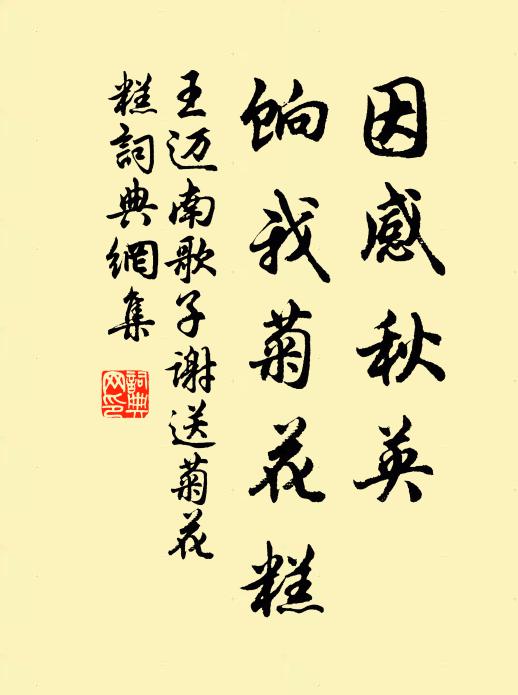 因感秋英
饷我菊花糕
王迈南歌子谢送菊花
糕詞典網集
詞典
网印